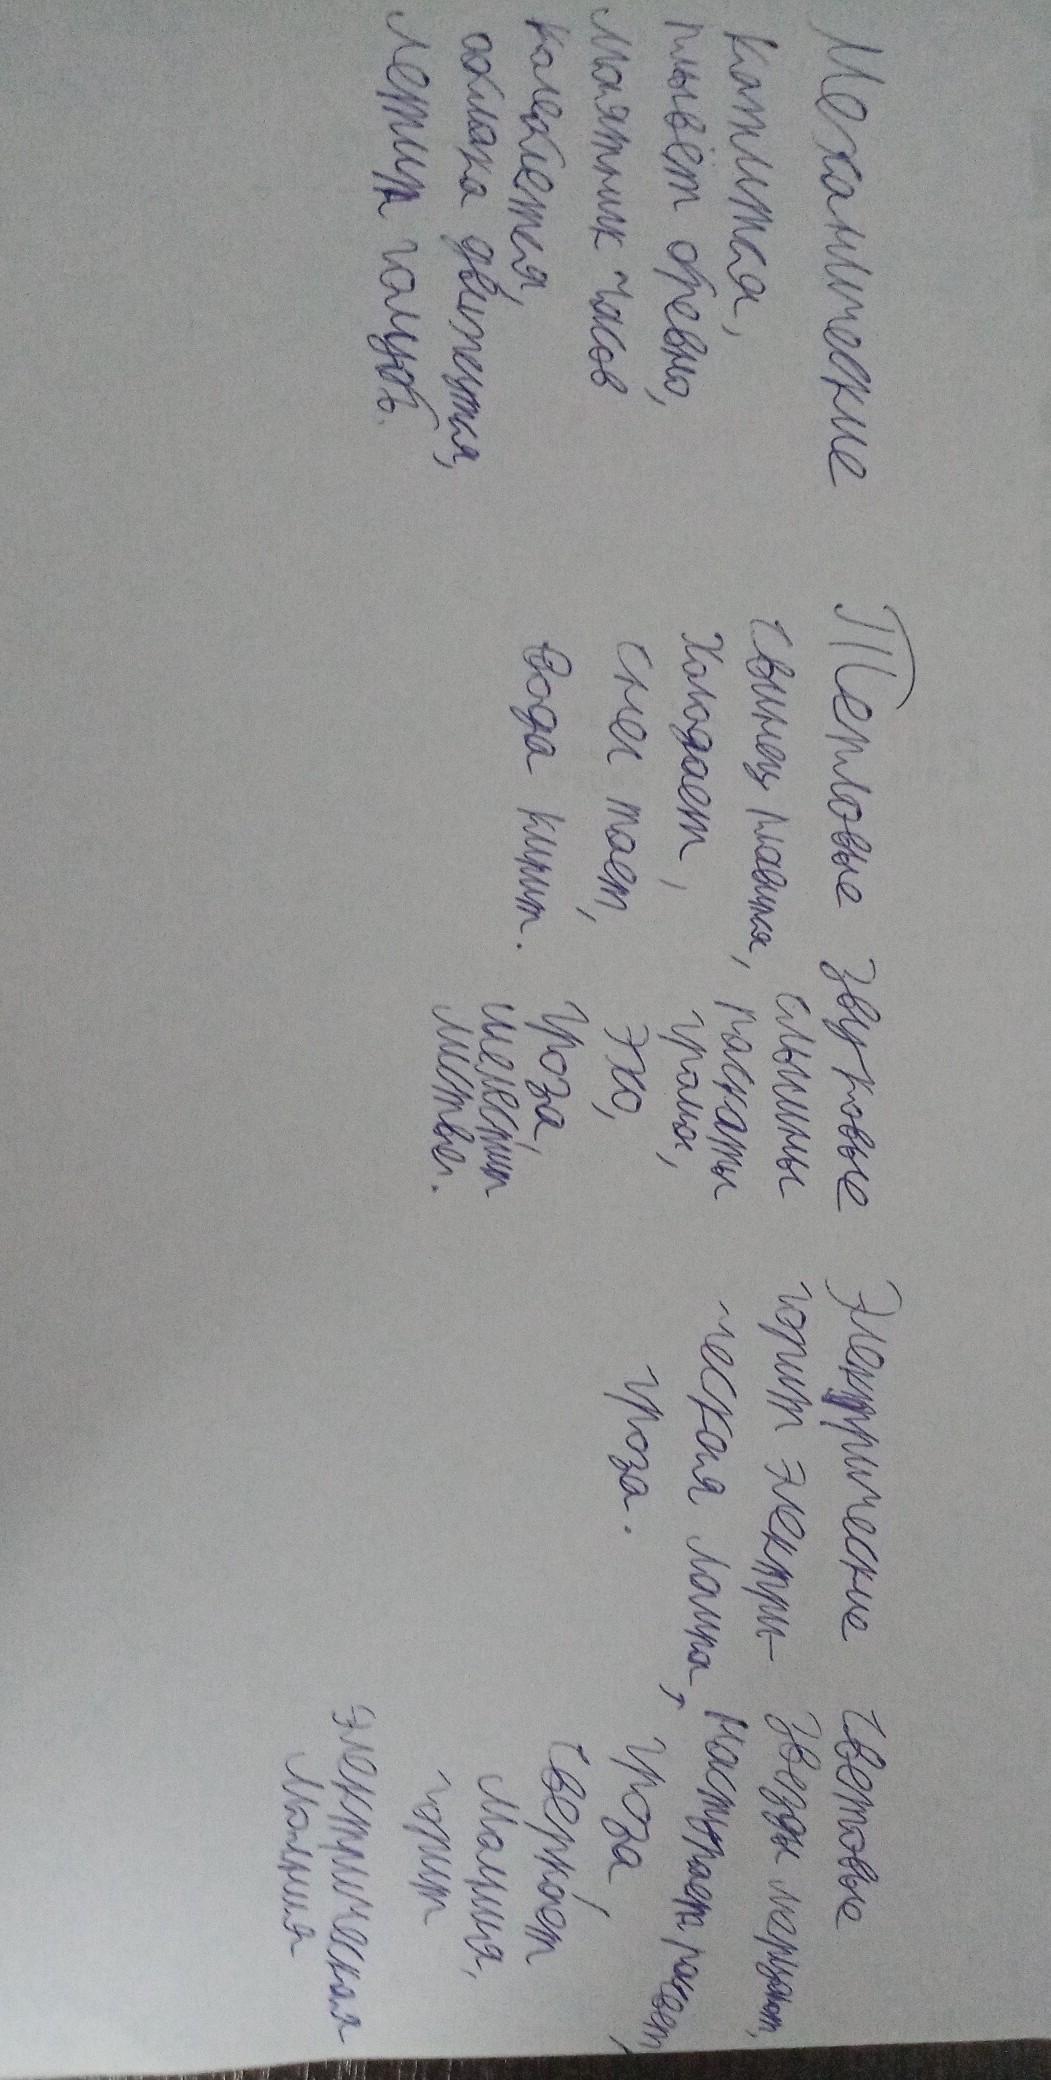 Механические
катится,
плывёт бревно,
маятник часов
колеблется,
облака движутся,
летит голубь.
Тепловые
свинец плавится,
холодает,
снег тает,
вода кипит.
Звуковые
слышны
раскаты
грома,
эхо,
гроза,
шелестит
листва.
Электрические
горит электри-
ческая лампа,
гроза.
Световые
звезды мерцают,
наступает рассвет,
гроза,
сверкает
молния,
горит
электрическая
молния